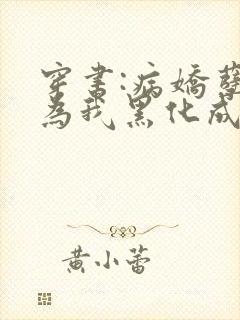 穿書:病嬌孽
為我黑化成
黃小蕾